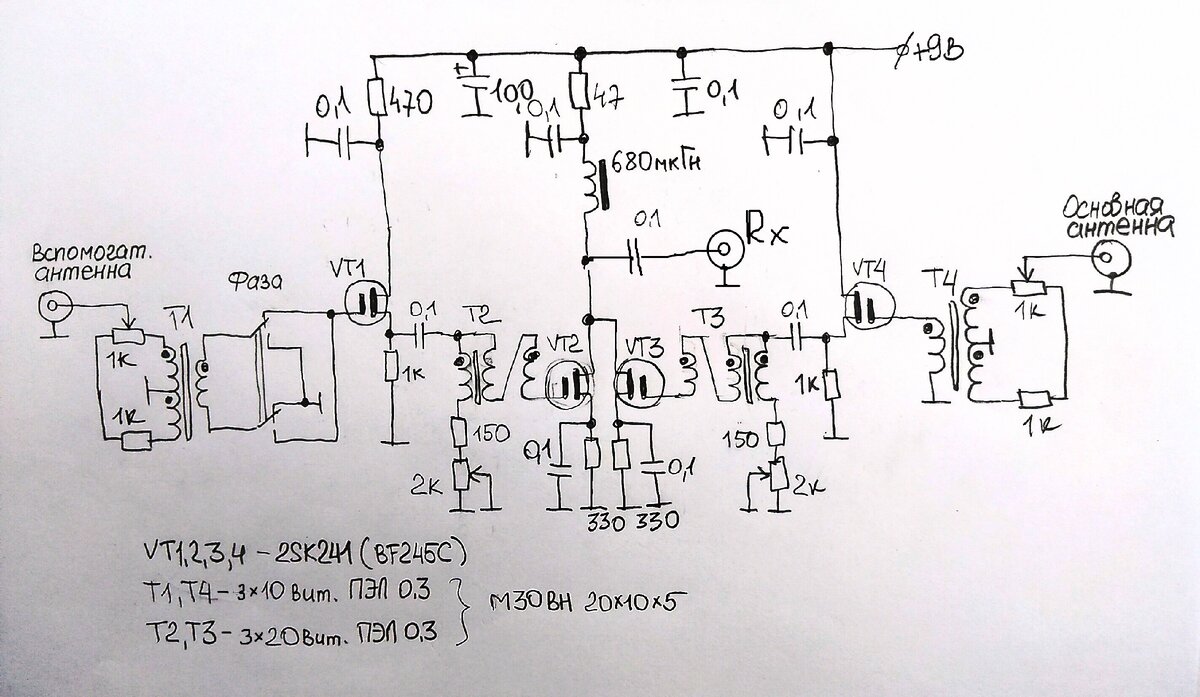 ø+9В
0,1
470
+
100
0,1
47
0,1
0,1
680мкГн
0,1
Rx
Основная
антенна
Вспомогат.
антенна
Фаза
VT1
VT4
T4
T1
0,1
T2
VT2
VT3
T3
0,1
1к
1к
1к
1к
1к
1к
150
150
2к
0,1
0,1
2к
330 330
VT1,2,3,4 – 2SK241 (BF245C)
T1,T4 – 3×10 вит. ПЭЛ 0.3
T2,T3 – 3×20 вит. ПЭЛ 0,3
М30ВН 20×10×5